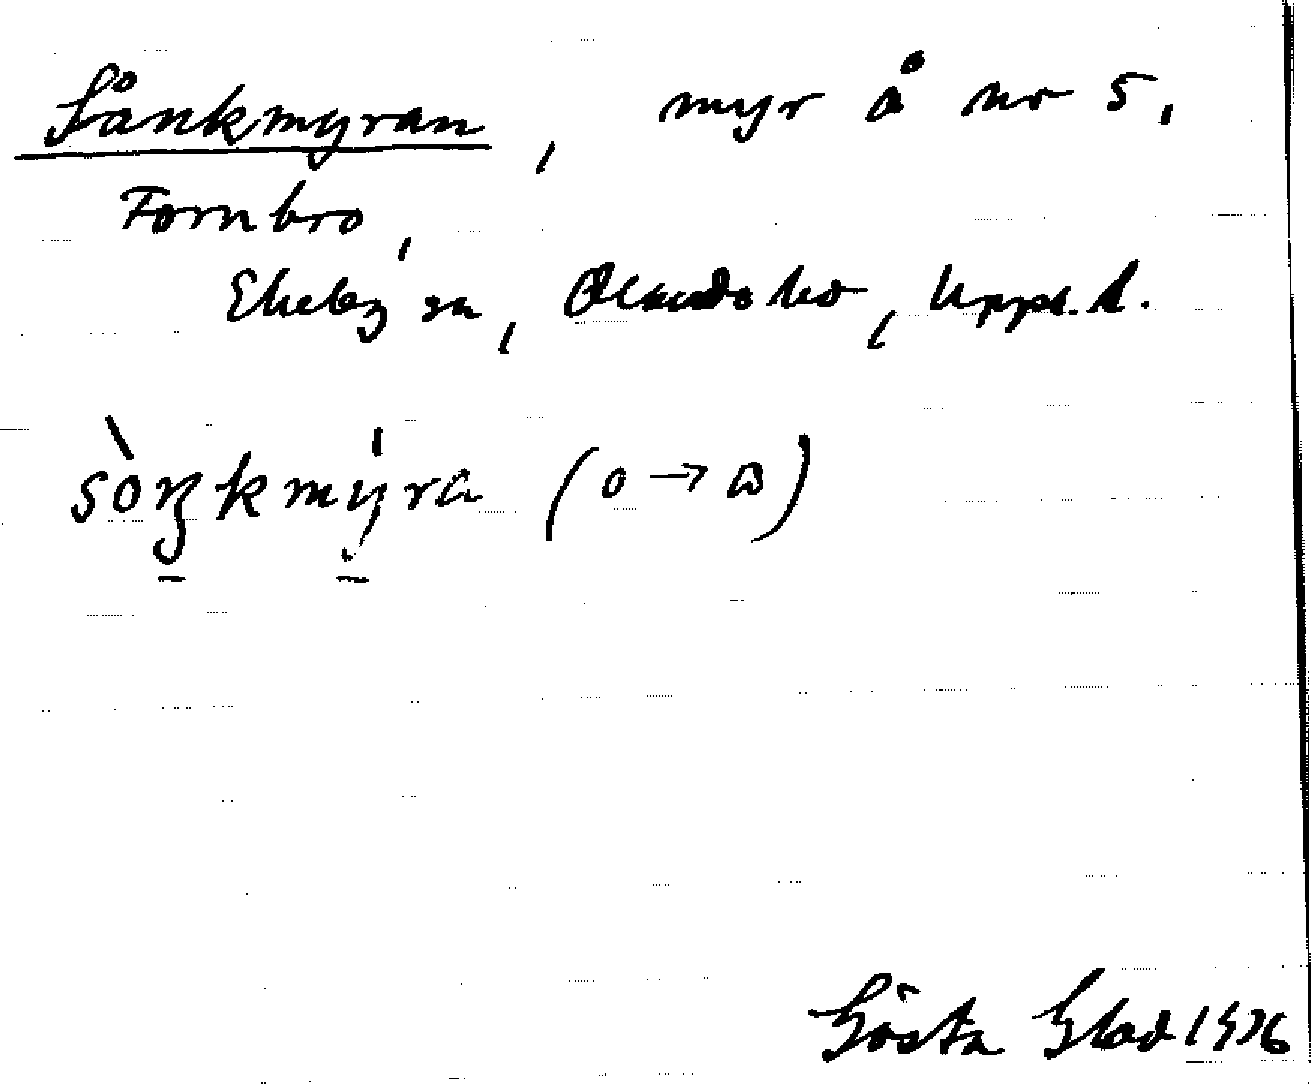 Sånkmyran, myr å nr 5,
Fornbro,
Ekeby sn, Olands hd, Uppl. l.
sòŋkmýra (o → ω)
Gösta Glad 1926